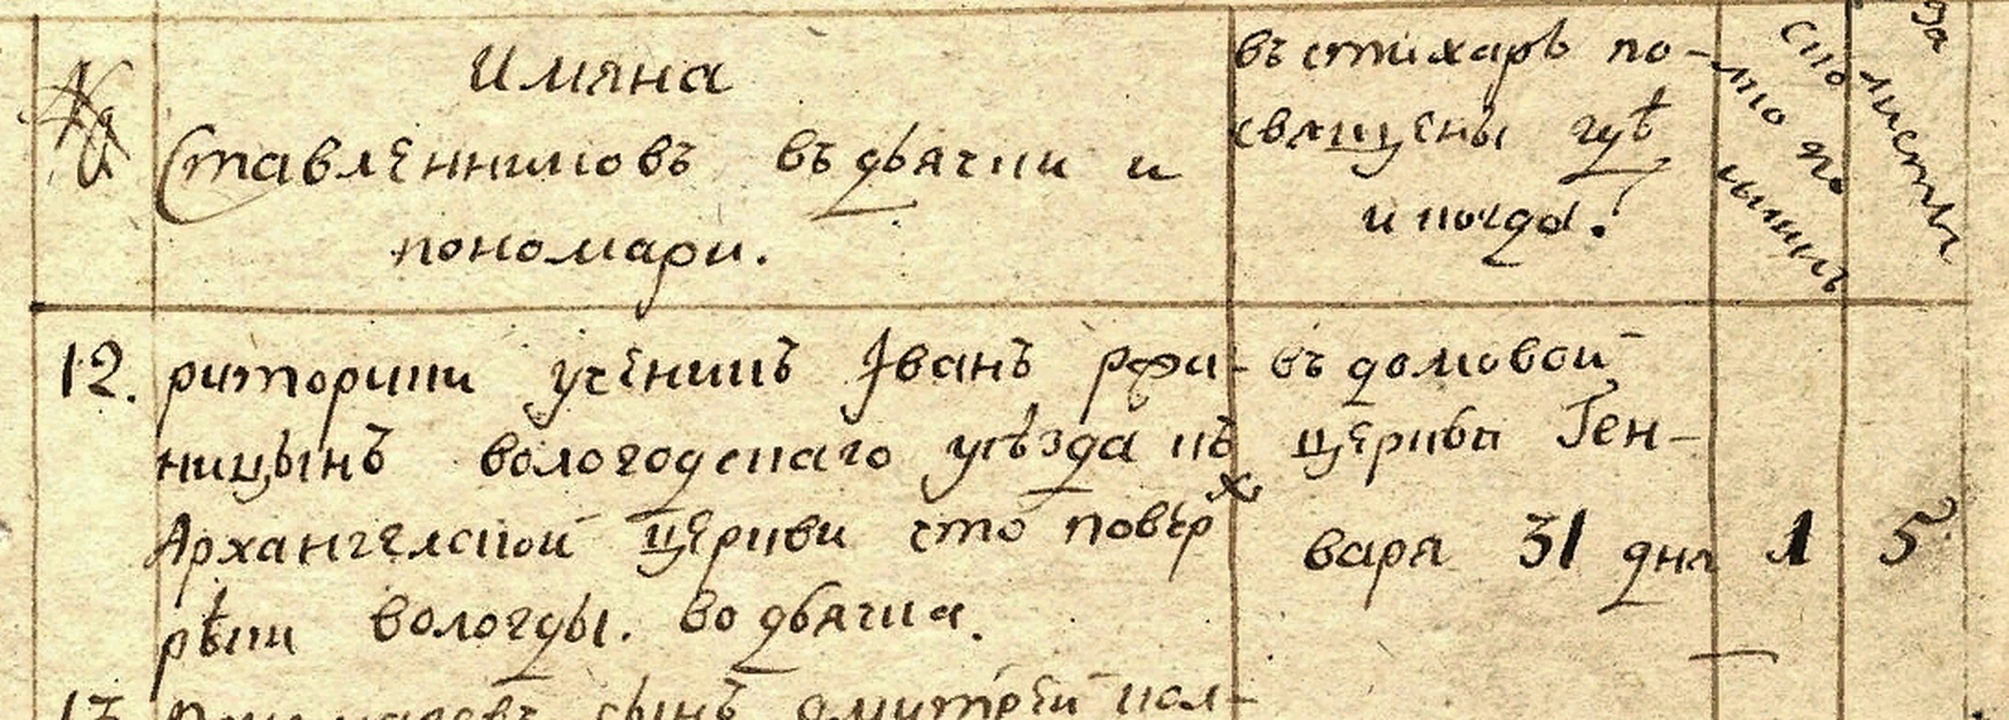 №
Имяна
Ставленниковъ въ дьячки и
пономари.
въ стихарь по-
священы гдѣ
и когда.
листы
12. риторики ученикъ Іванъ рафи-
ницынъ вологодскаго уѣзда къ
Архангелской церкви что поверх
рѣки вологды. во дьячка.
въ домовой
церкви Ген-
варя 31 дня
1
5
сынъ дмитрей